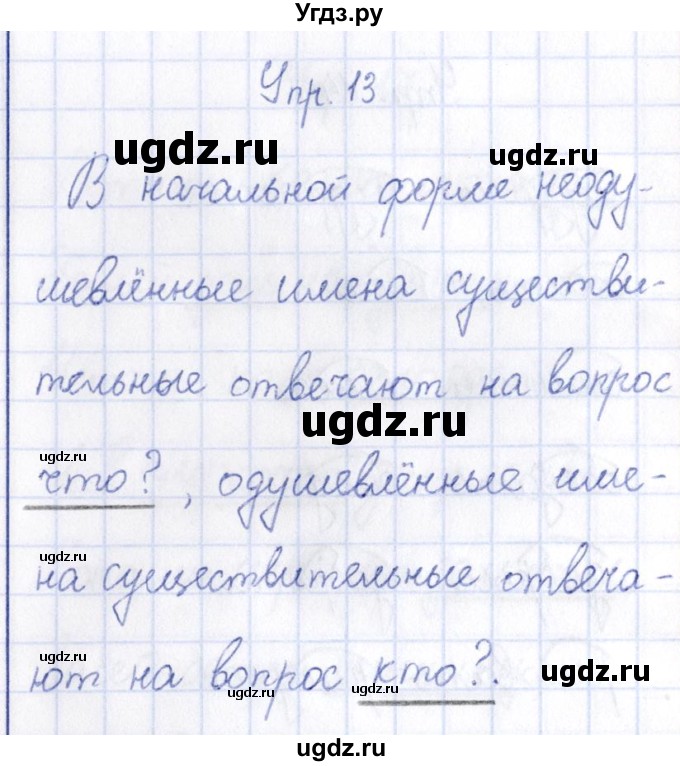 Угдз.ру
Упр. 13
ugdz.ru ugdz.ru
В начальной форме неоду-
шевлённые имена существи-
тельные отвечают на вопрос
ugdz.ru
ugdz.ru
что?, одушевлённые име-
ugdz.ru
на существительные отвеча-
ugdz.ru
ют на вопрос кто?.
ugdz.ru ugdz.ru ugdz.ru
ugdz.ru